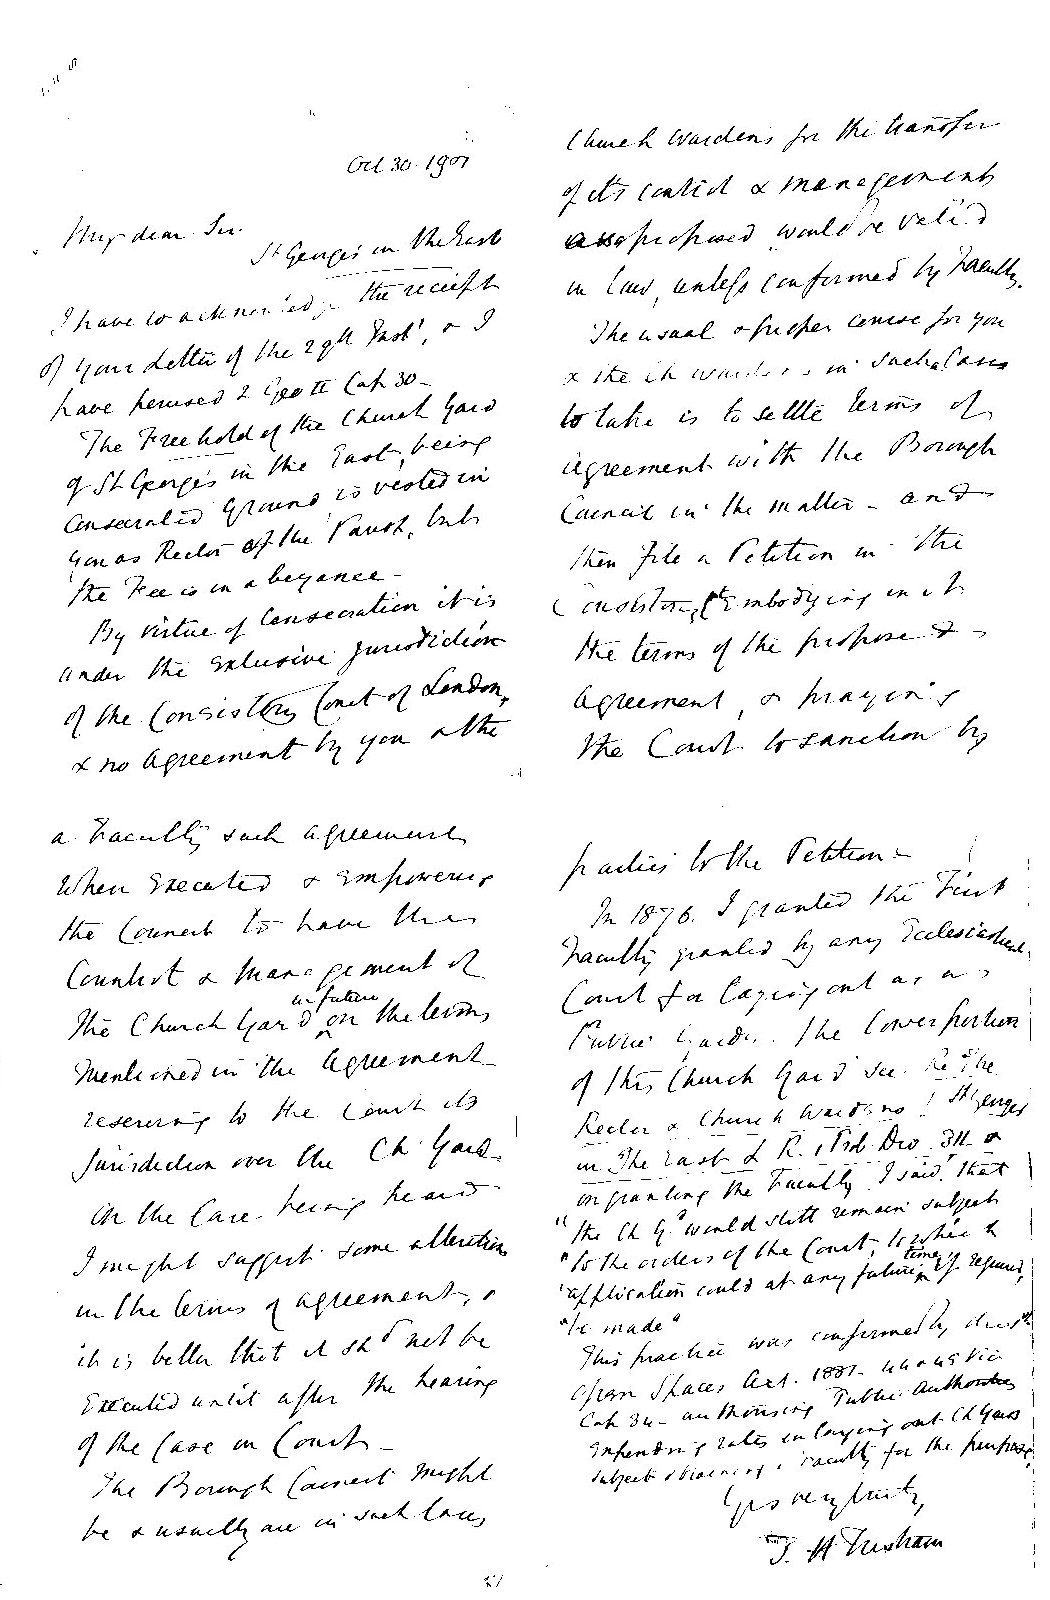 Oct 30. 1901
My dear Sir
St George's in the East
I have to acknowledge the receipt
of your Letter of the 29th Inst, & I
have perused 2 Geo II Cap 30 -
The Freehold of the Church Yard
of St George's in the East, being
Consecrated Ground, is vested in
you as Rector of the Parish, but
the Fee is in abeyance -
By virtue of Consecration it is
under the exclusive jurisdiction
of the Consistory Court of London,
& no Agreement by you & the
Church Wardens for the transfer
of its control & management
as proposed would be valid
in law, unless confirmed by Faculty.
The usual & proper course for you
& the Ch wardens in such a Case
to take is to settle terms of
agreement with the Borough
Council in the matter - and
then file a Petition in the
Consistory Ct Embodying in it
the terms of the proposed -
Agreement, & praying
the Court to sanction by
a Faculty such agreement
when Executed & empowering
the Council to have the
Control & management of
the Church Yard in future on the terms
mentioned in the Agreement
reserving to the Court its
Jurisdiction over the Ch Yard -
On the Case being heard
I might suggest some alteration
in the terms of agreement, &
it is better that it shd not be
Executed until after the hearing
of the Case in Court -
The Borough Council might
be & usually are in such Cases
parties to the Petition -
In 1876. I granted the First
Faculty granted by any Ecclesiastical
Court for laying out as a
Public Garden. the lower portion
of this Church Yard see. Re The
Rector & Church Wardens of St Georges
in The East L R. 1 Prob Div 311 &
in granting the Faculty I said that
"the Ch Yd would still remain subject
"to the orders of the Court, to which
"application could at any future time, if required,
"be made"
This practice was confirmed by the
Open Spaces Act. 1881. 44 & 45 Vic
Cap 34 - authorising Public Authorities
Expending rates in laying out Ch Yards
subject obtaining a Faculty for the purpose.
Yrs very truly,
T. H Tristram